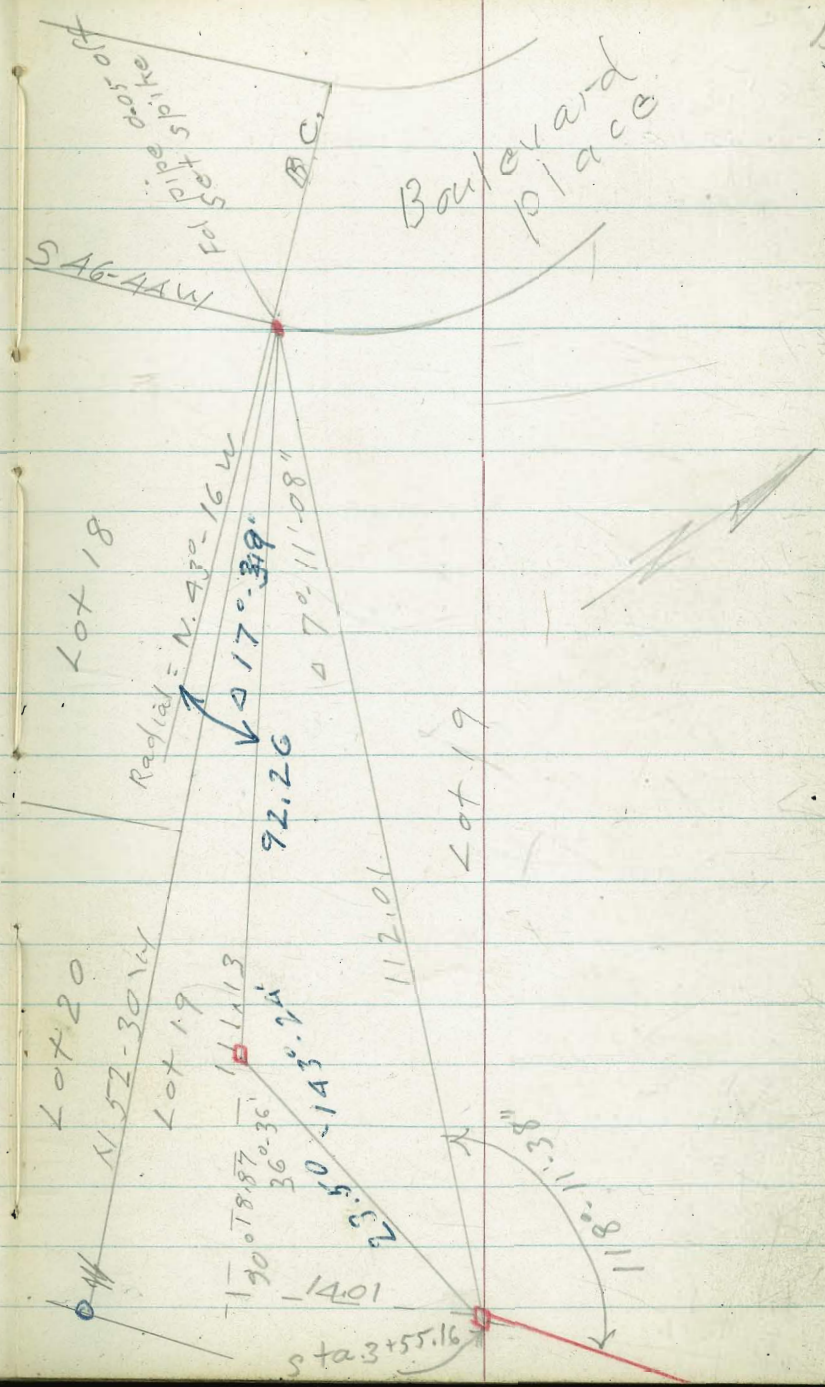 Fd pipe 0.05 off
Set spike
B.C.
Boulevard
Place
S 46-44 W
Lot 18
Radial = N. 43°-16 W
Δ 17°-
Δ 7°-11'-08"
92.26
Lot 19
112.01
Lot 20
N 52-30 W
Lot 19
111.13
23.50
143°-24'
18.87
36°-36'
90°
14.01
118°-11'-38"
Sta. 3+55.16